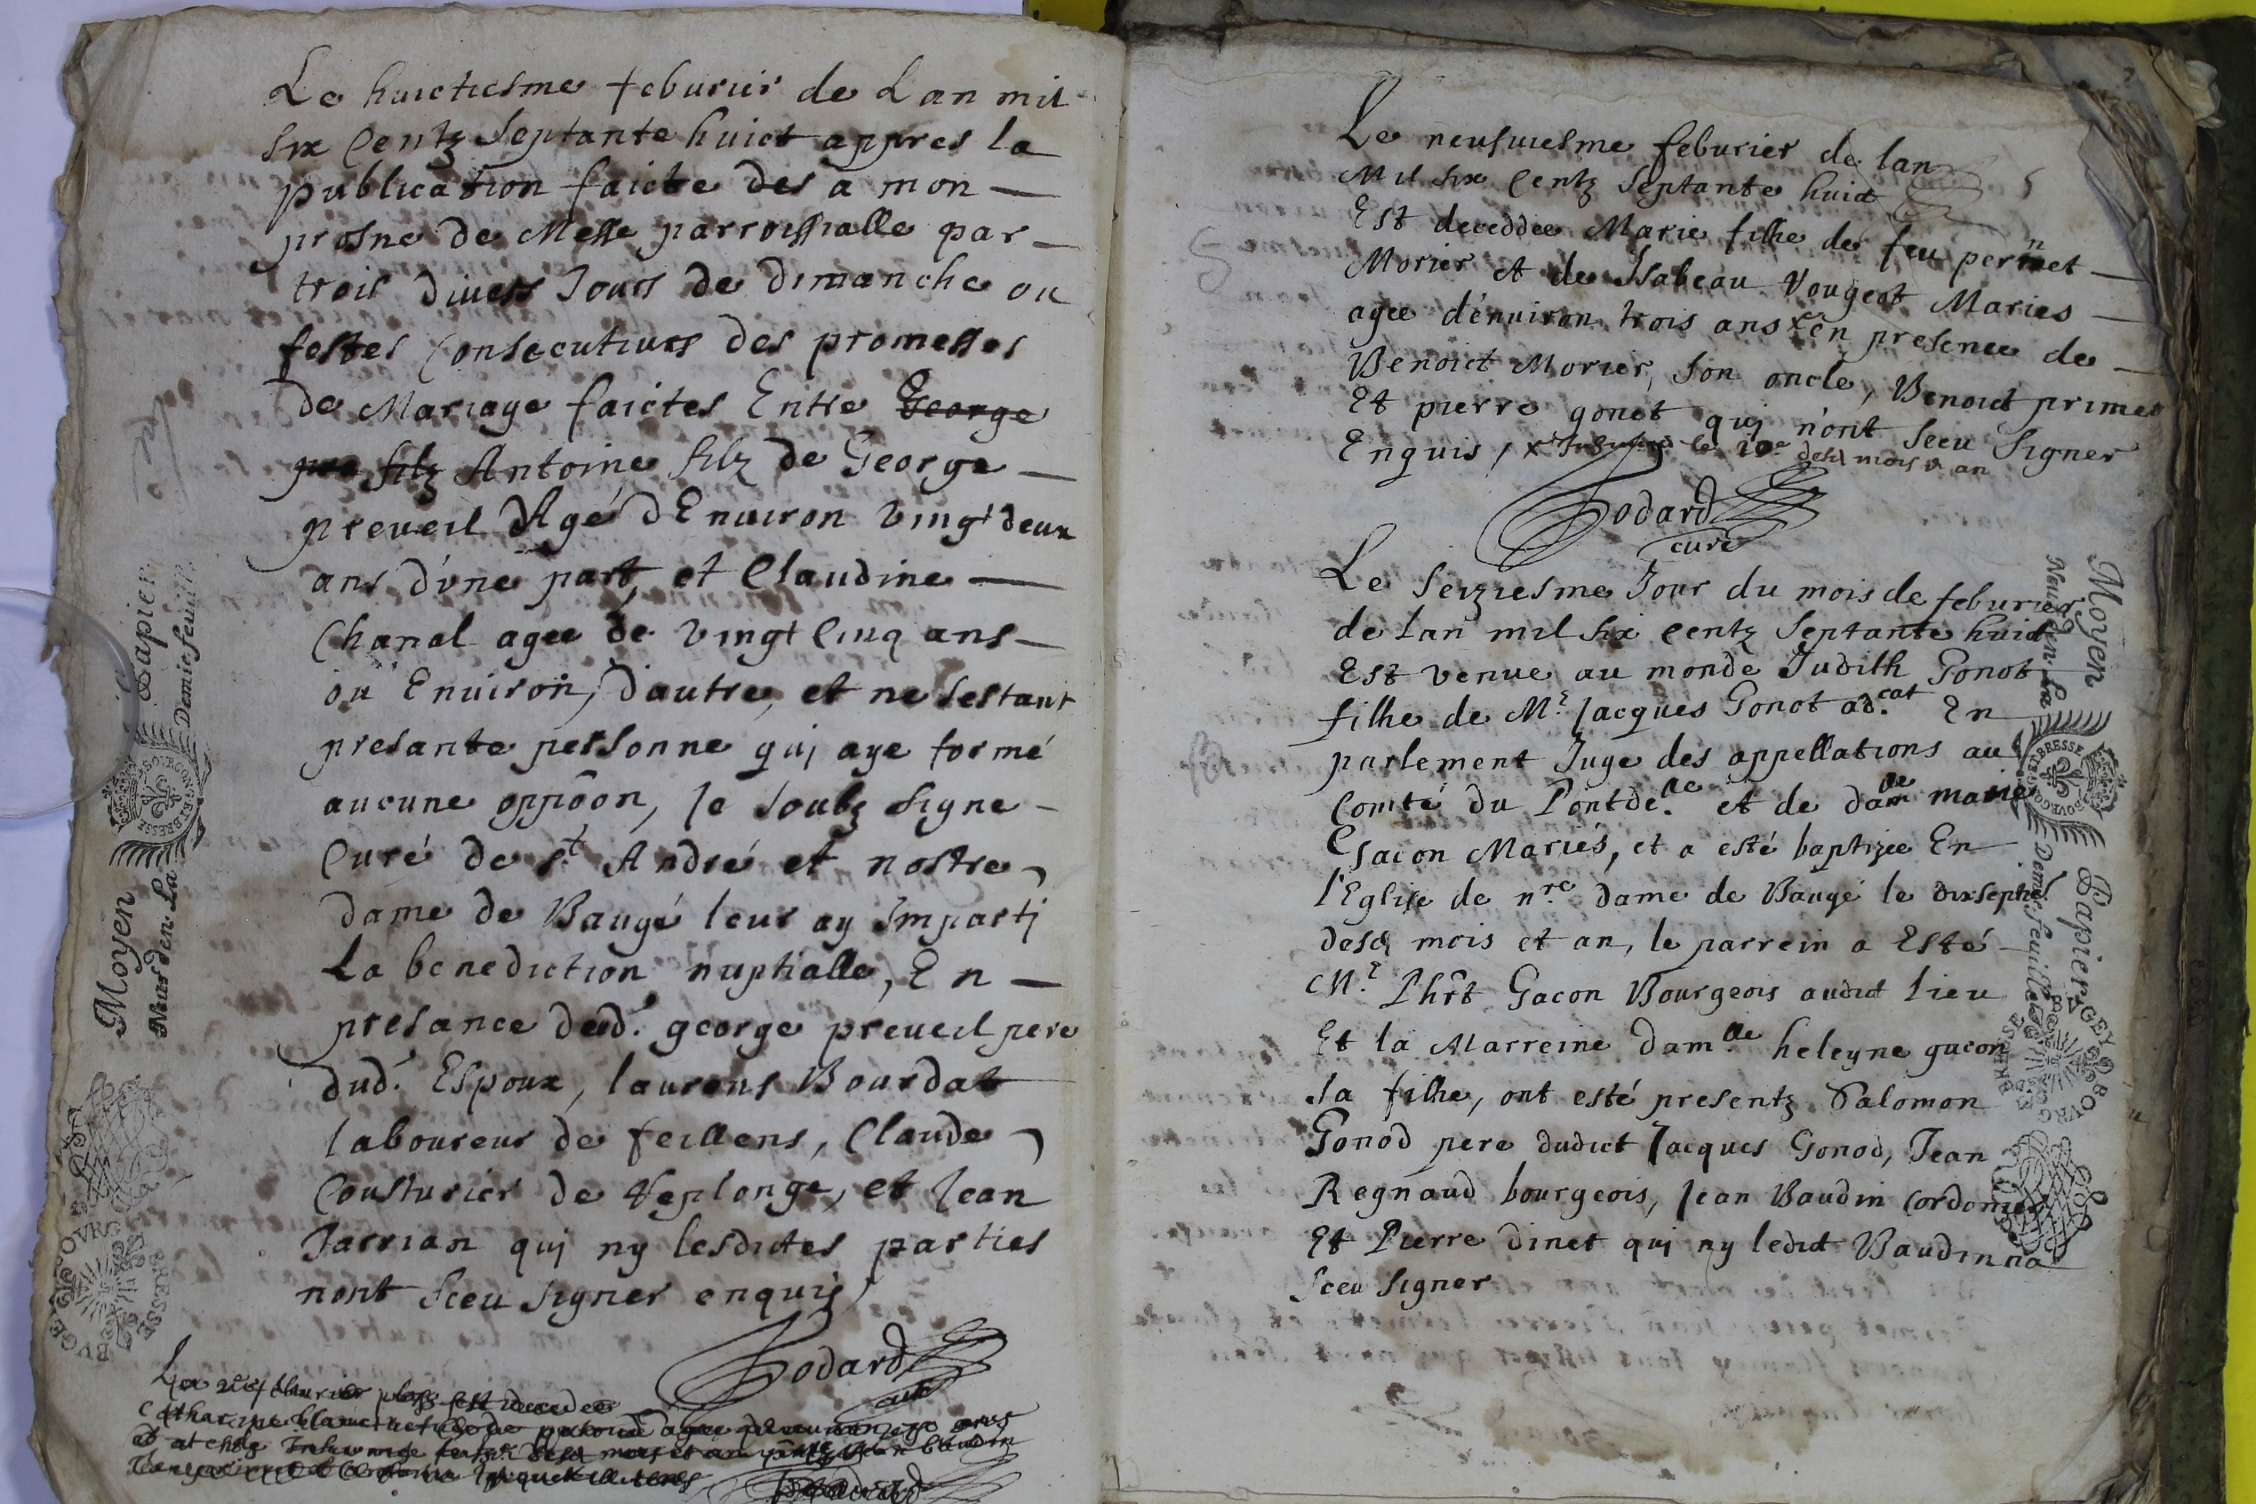 Le huictiesme feburier de Lan mil
six Centz Septante huict appres la
publication faicte des a mon
prosne de Messe parroissialle par
trois divers Jours de dimanche ou
festes Consecutives des promesses
de Mariage faictes Entre George
filz Antoine filz de George
preveil Agé d'Environ vingt deux
ans d'une part, et Claudine
Chanal agee de vingt Cinq ans
ou Environ, d'autre, et ne sestant
presante personne qui aye formé
aucune oppôon, Je soubz signe
Curé de St André et nostre
dame de Baugé leur ay Imparti
La benediction nuptialle, En
presance dud. george preveil pere
dud. Espoux, laurens Bourdat
laboureur de feillens, Claude
Cousturier de Veplonge, et Jean
Jarrian qui ny lesdictes parties
nont sceu signer enquis
Godard
curé
Le feburier est decedee
Catharine agee d'environ ans
desd mois et an Jean baudin
Godard
Le neufviesme feburier de lan
Mil six Centz Septante huict
Est deceddee Marie filhe de feu pernet
Morier et de Isabeau Vougeot Maries
agee d'environ trois ans x en presence de
Benoict Morier, son oncle, Benoict primet
Et pierre gonet qui n'ont sceu signer
Enquis, x Inhumée le 10e desd mois & an
Godard
curé
Le seiziesme Jour du mois de feburier
de Lan mil six centz Septante huict
Est venue au monde Judith Gonot
filhe de Mr Jacques Gonot ad.cat En
parlement Juge des appellations au
Comté du Pontde.le et de dam.lle marie
Gacon Mariés, et a esté baptizée En
l'Eglise de n.re dame de Baugé le dixsepte
desd mois et an, le parrein a Esté
Mr Phrt Gacon Bourgeois audict lieu
Et la Marreine dam.lle heleyne gacon
sa filhe, ont esté presentz Salomon
Gonod pere dudict Jacques Gonod, Jean
Regnaud bourgeois, Jean Baudin Cordonier
Et Pierre dinet qui ny ledict Baudin na
sceu signer
Moyen Papier
Neuf den. La Demie feuille
BOURGONGNE BRESSE
BVGEY BOVRG BRESSE
Moyen Papier
Neuf den. La Demie feuille
BRESSE
BVGEY BOVRG BRESSE